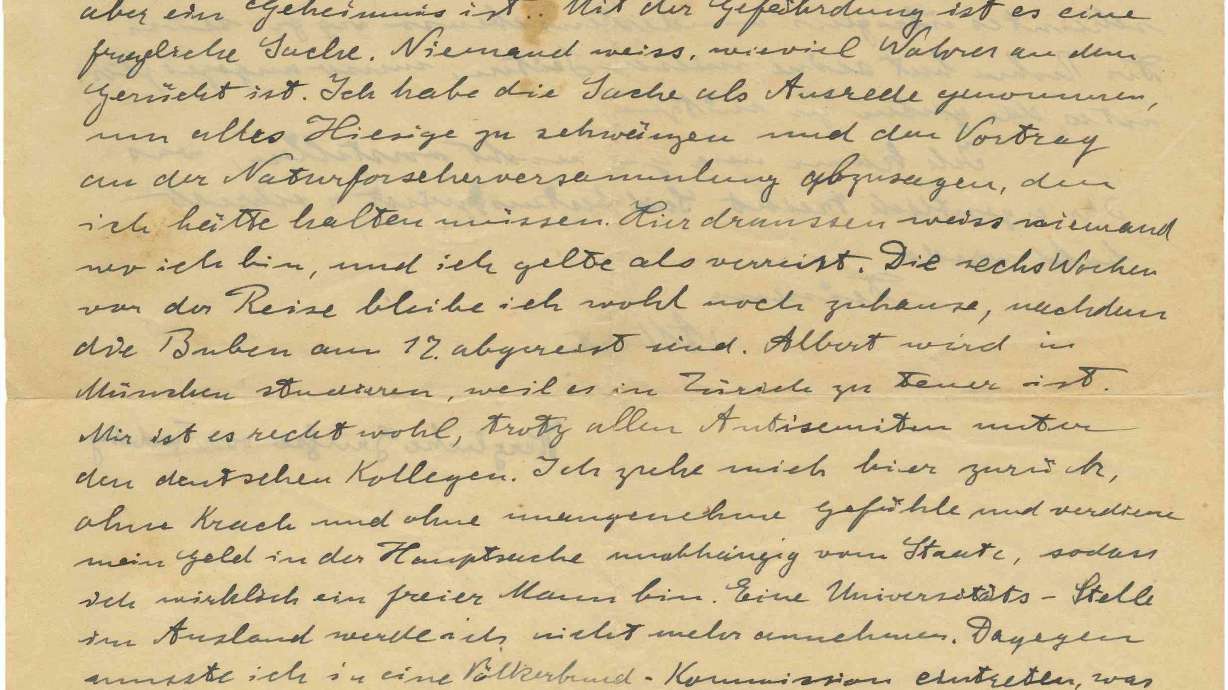 aber ein Geheimnis ist.. Mit der Gefährdung ist es eine
fragliche Sache. Niemand weiss, wieviel Wahres an dem
Gerücht ist. Ich habe die Sache als Ausrede genommen,
um alles Hiesige zu schwänzen und den Vortrag
an der Naturforscherversammlung abzusagen, den
ich hätte halten müssen. Hier draussen weiss niemand
wo ich bin, und ich gelte als verreist. Die sechs Wochen
vor der Reise bleibe ich wohl noch zuhause, nachdem
die Buben am 17. abgereist sind. Albert wird in
München studieren, weil es in Zürich zu teuer ist.
Mir ist es recht wohl, trotz allen Antisemiten unter
den deutschen Kollegen. Ich ziehe mich hier zurück,
ohne Krach und ohne unangenehme Gefühle und verdiene
mein Geld in der Hauptsache unabhängig vom Staate, sodass
ich wirklich ein freier Mann bin. Eine Universitäts-Stelle
im Ausland werde ich nicht mehr annehmen. Dagegen
musste ich in eine Völkerbund-Kommission eintreten, was